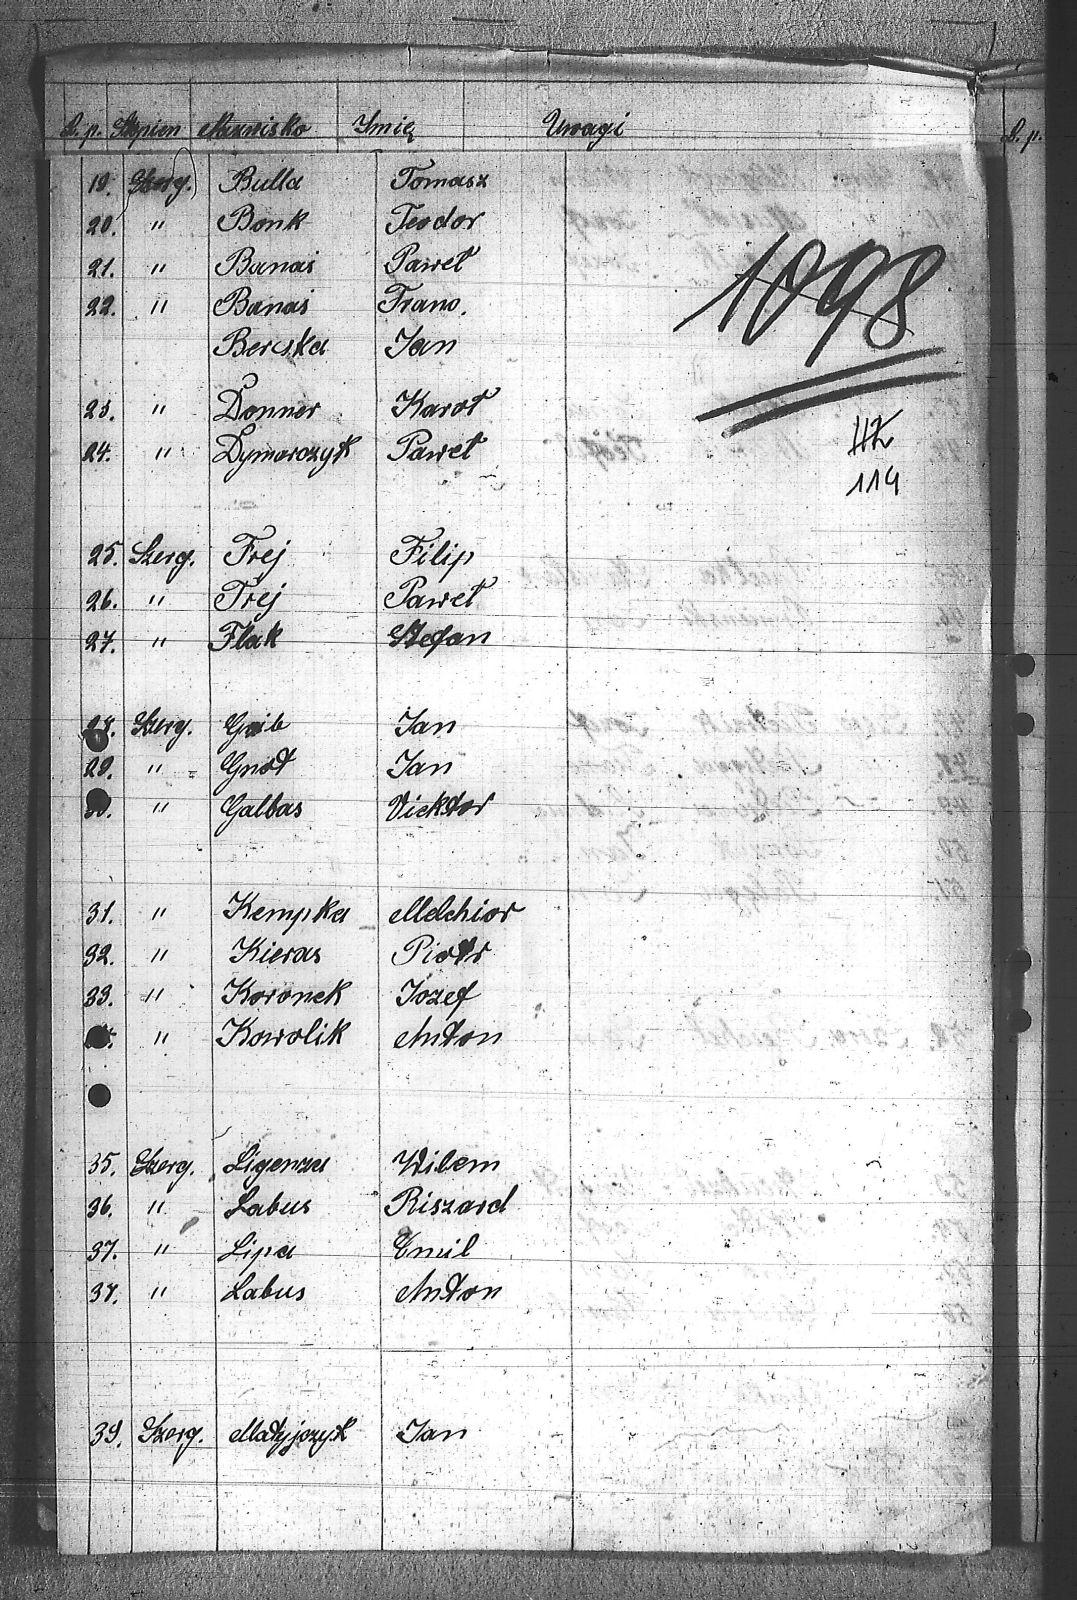 L. p. Stopien Nazwisko Imię Uwagi
19. Szerg. Bulla Tomasz
20. " Bonk Teodor
21. " Banaś Paweł
22. " Banaś Franc.
Berczka Jan
1098
23. " Donner Karol
24. " Dymarczyk Paweł
114
25. Szerg. Frej Filip
26. " Frej Paweł
27. " Flak Stefan
28. Szerg. Grib Jan
29. " Gnot Jan
30. " Galbas Vicktor
31. " Kempka Melchior
32. " Kieras Piotr
33. " Koronek Jozef
" Kowolik Anton
35. Szerg. Ligenza Wilem
36. " Labus Riszard
37. " Lipa Emil
37. " Labus Anton
39. Szerg. Matyjczyk Jan
L. p.